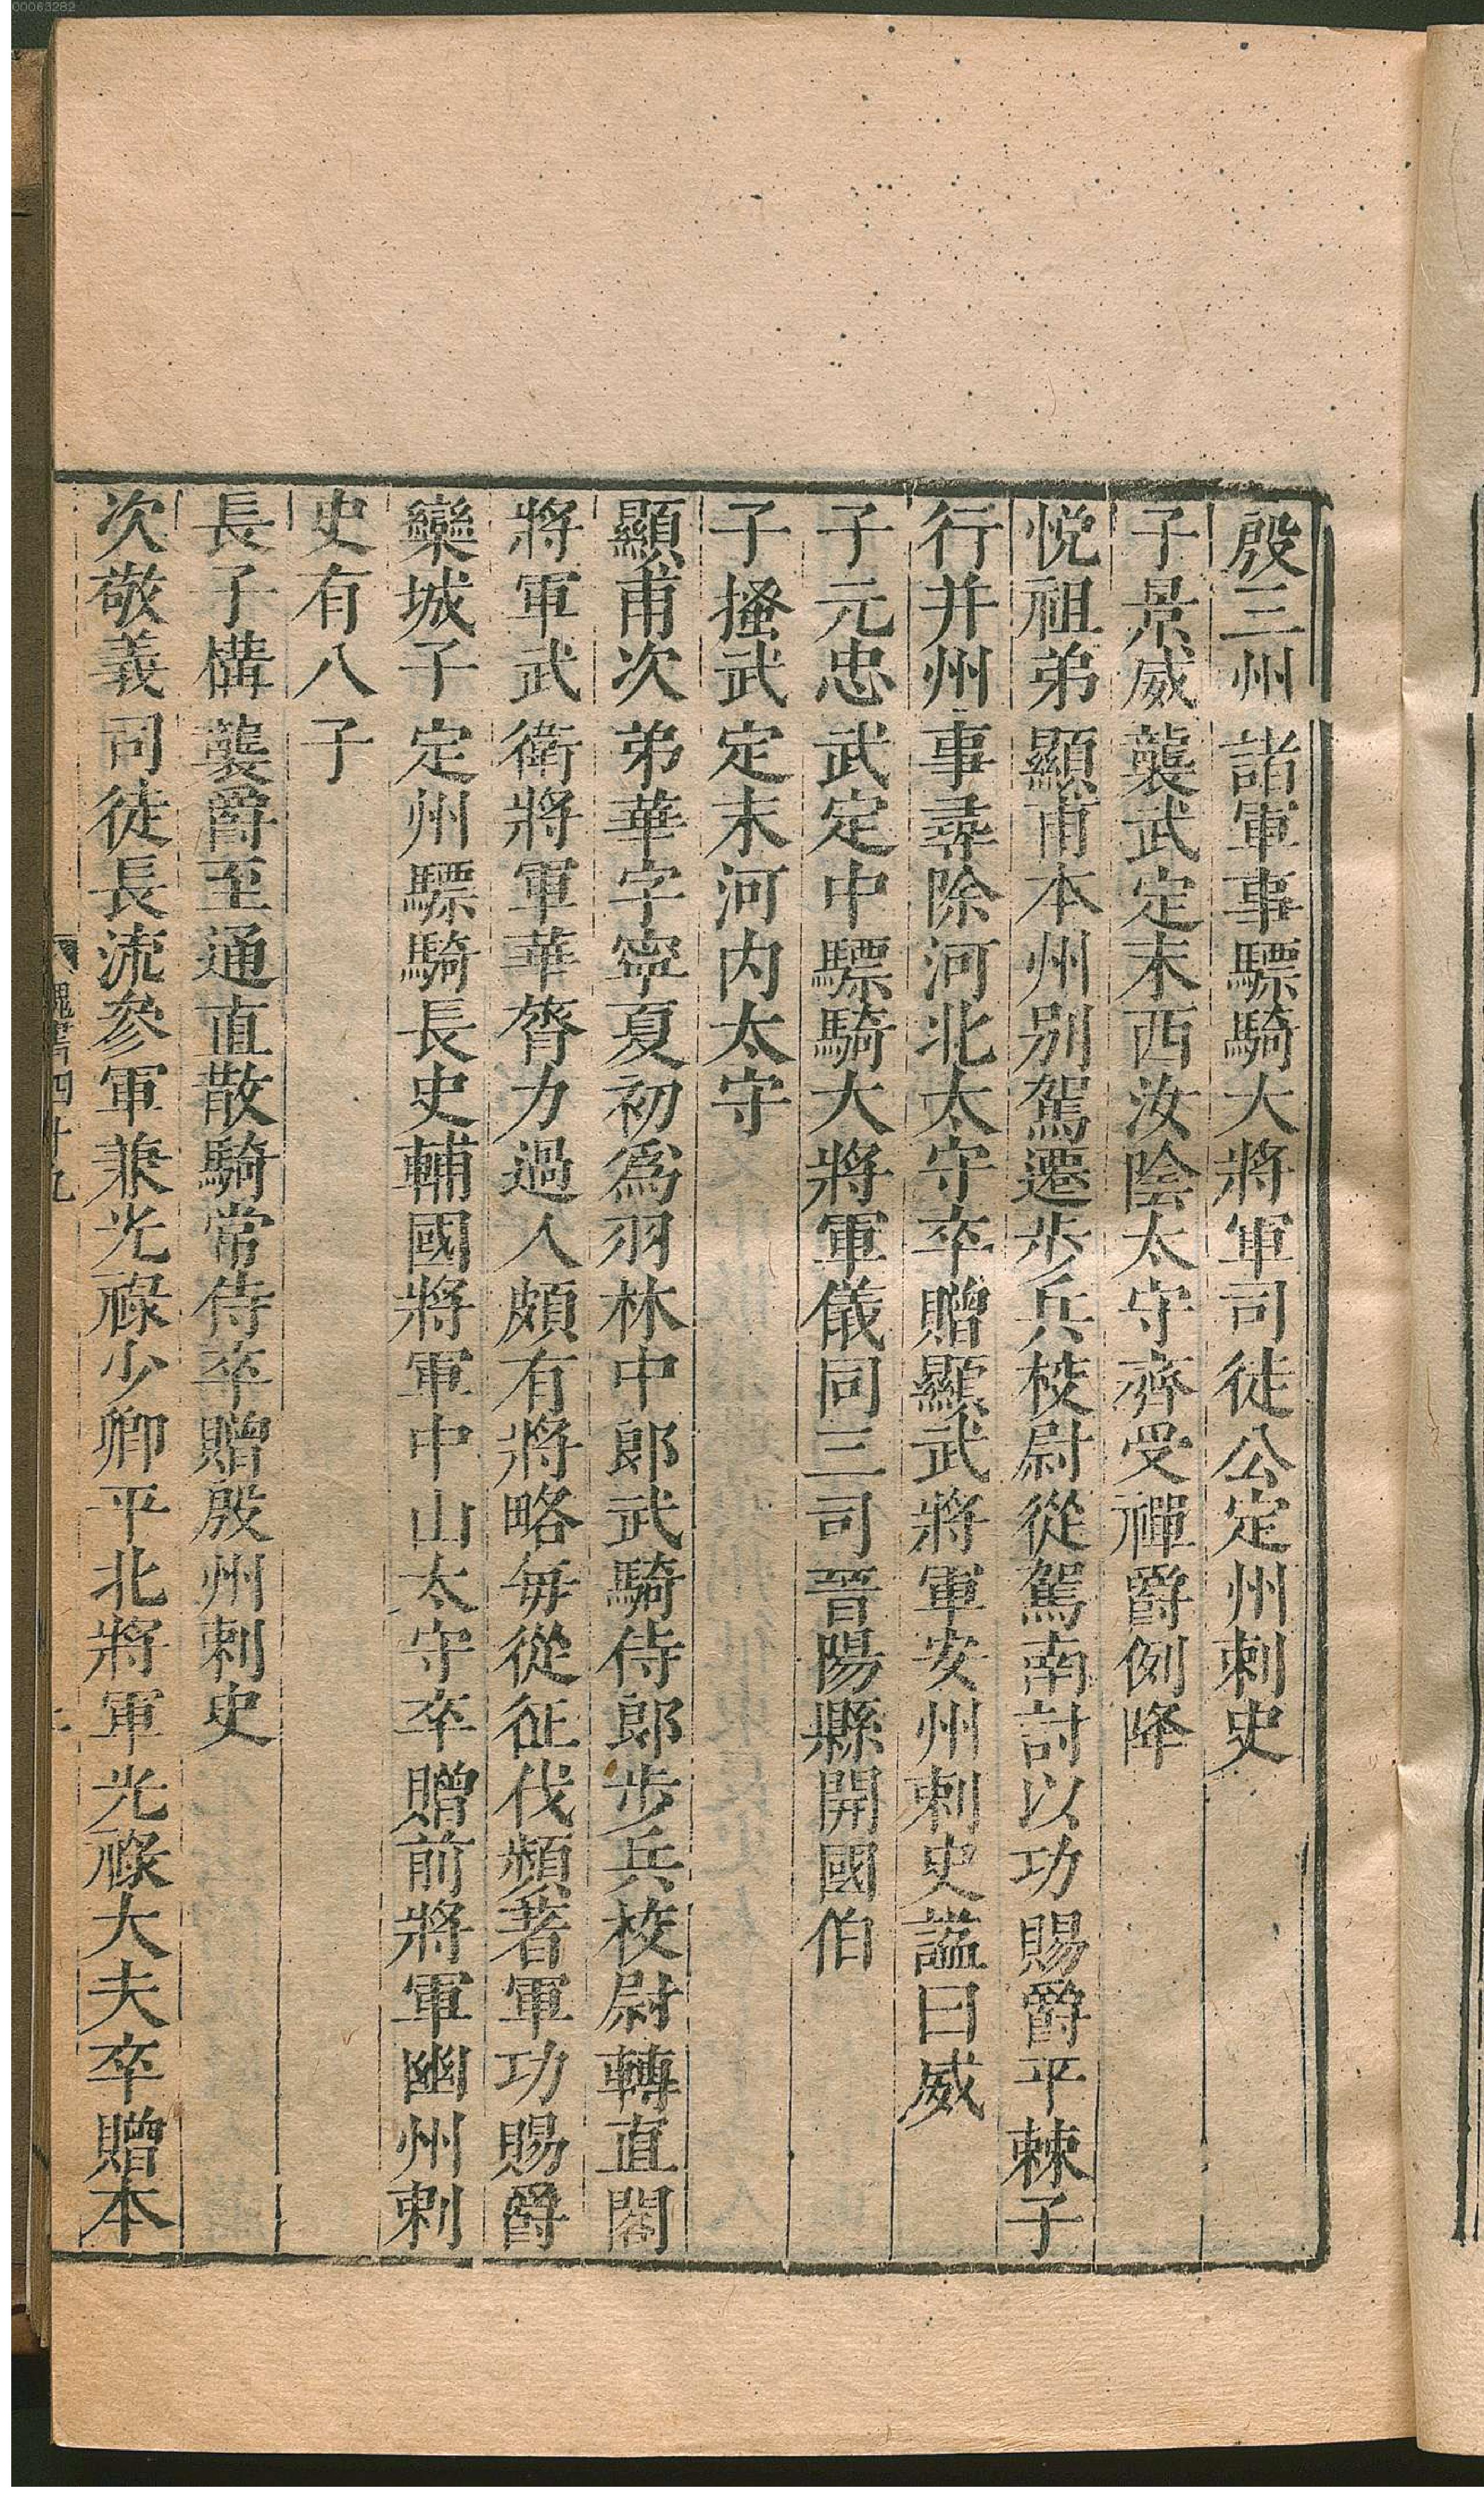 殷三州諸軍事驃騎大將軍司徒公定州刺史
子景威襲武定末西汝陰太守齊受禪爵例降
悅祖弟顯甫本州別駕遷步兵校尉從駕南討以功賜爵平棘子
行并州事尋除河北太守卒贈顯武將軍安州刺史謚曰威
子元忠武定中驃騎大將軍儀同三司晉陽縣開國伯
子搔武定末河內太守
顯甫次弟華字寧夏初爲羽林中郎武騎侍郎步兵校尉轉直閤
將軍武衛將軍華膂力過人頗有將略每從征伐頻著軍功賜爵
欒城子定州驃騎長史輔國將軍中山太守卒贈前將軍幽州刺
史有八子
長子構襲爵至通直散騎常侍卒贈殷州刺史
次敬義司徒長流參軍兼光祿少卿平北將軍光祿大夫卒贈本
魏書四十九
00063282